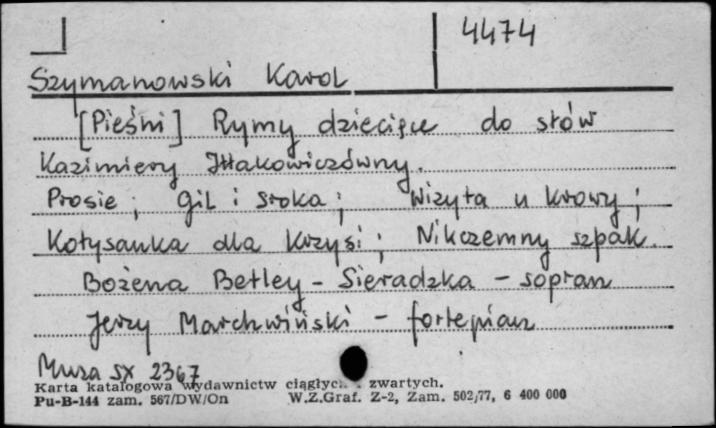 4474
Szymanowski Karol
[Pieśni] Rymy dziecięce do słów
Kazimiery Iłłakowiczówny.
Prosie; Gil i sroka; Wizyta u krowy;
Kołysanka dla Krzysi; Nikczemny szpak.
Bożena Betley-Sieradzka - sopran
Jerzy Marchwiński - fortepian
Muza SX 2367
Karta katalogowa wydawnictw ciągłyc. zwartych.
Pu-B-144 zam. 567/DW/On W.Z.Graf. Z-2, Zam. 502/77, 6 400 000